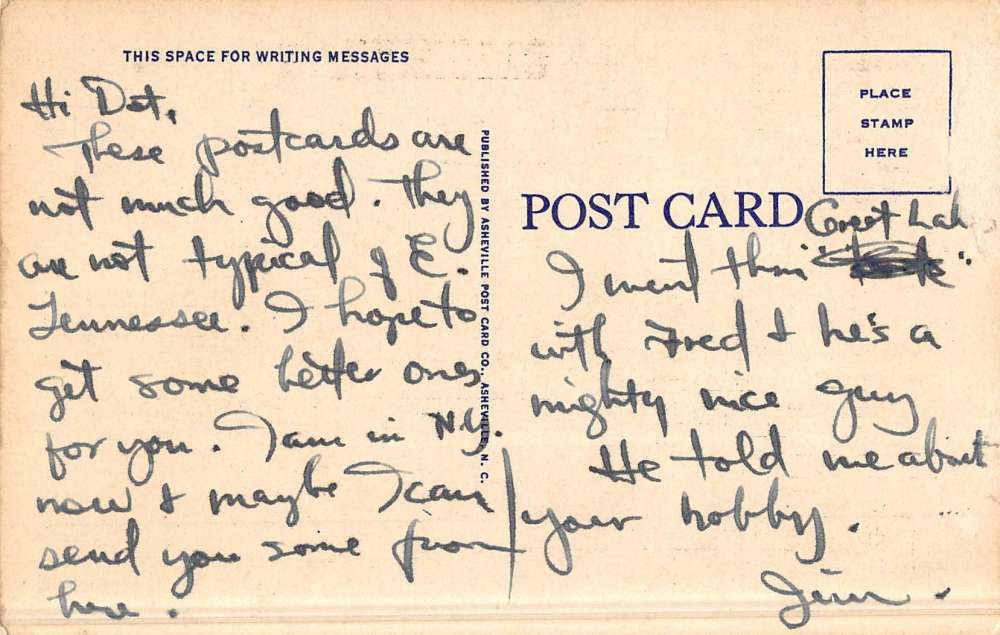 THIS SPACE FOR WRITING MESSAGES
Hi Dot,
These postcards are
not much good. They
are not typical of E.
Tennessee. I hope to
get some better ones
for you. I am in N.Y.
now & maybe I can
send you some from
here.
PUBLISHED BY ASHEVILLE POST CARD CO., ASHEVILLE, N. C.
PLACE
STAMP
HERE
POST CARD
Great Lak
I went thru
with Fred & he's a
mighty nice guy
He told me about
your hobby.
Jim.